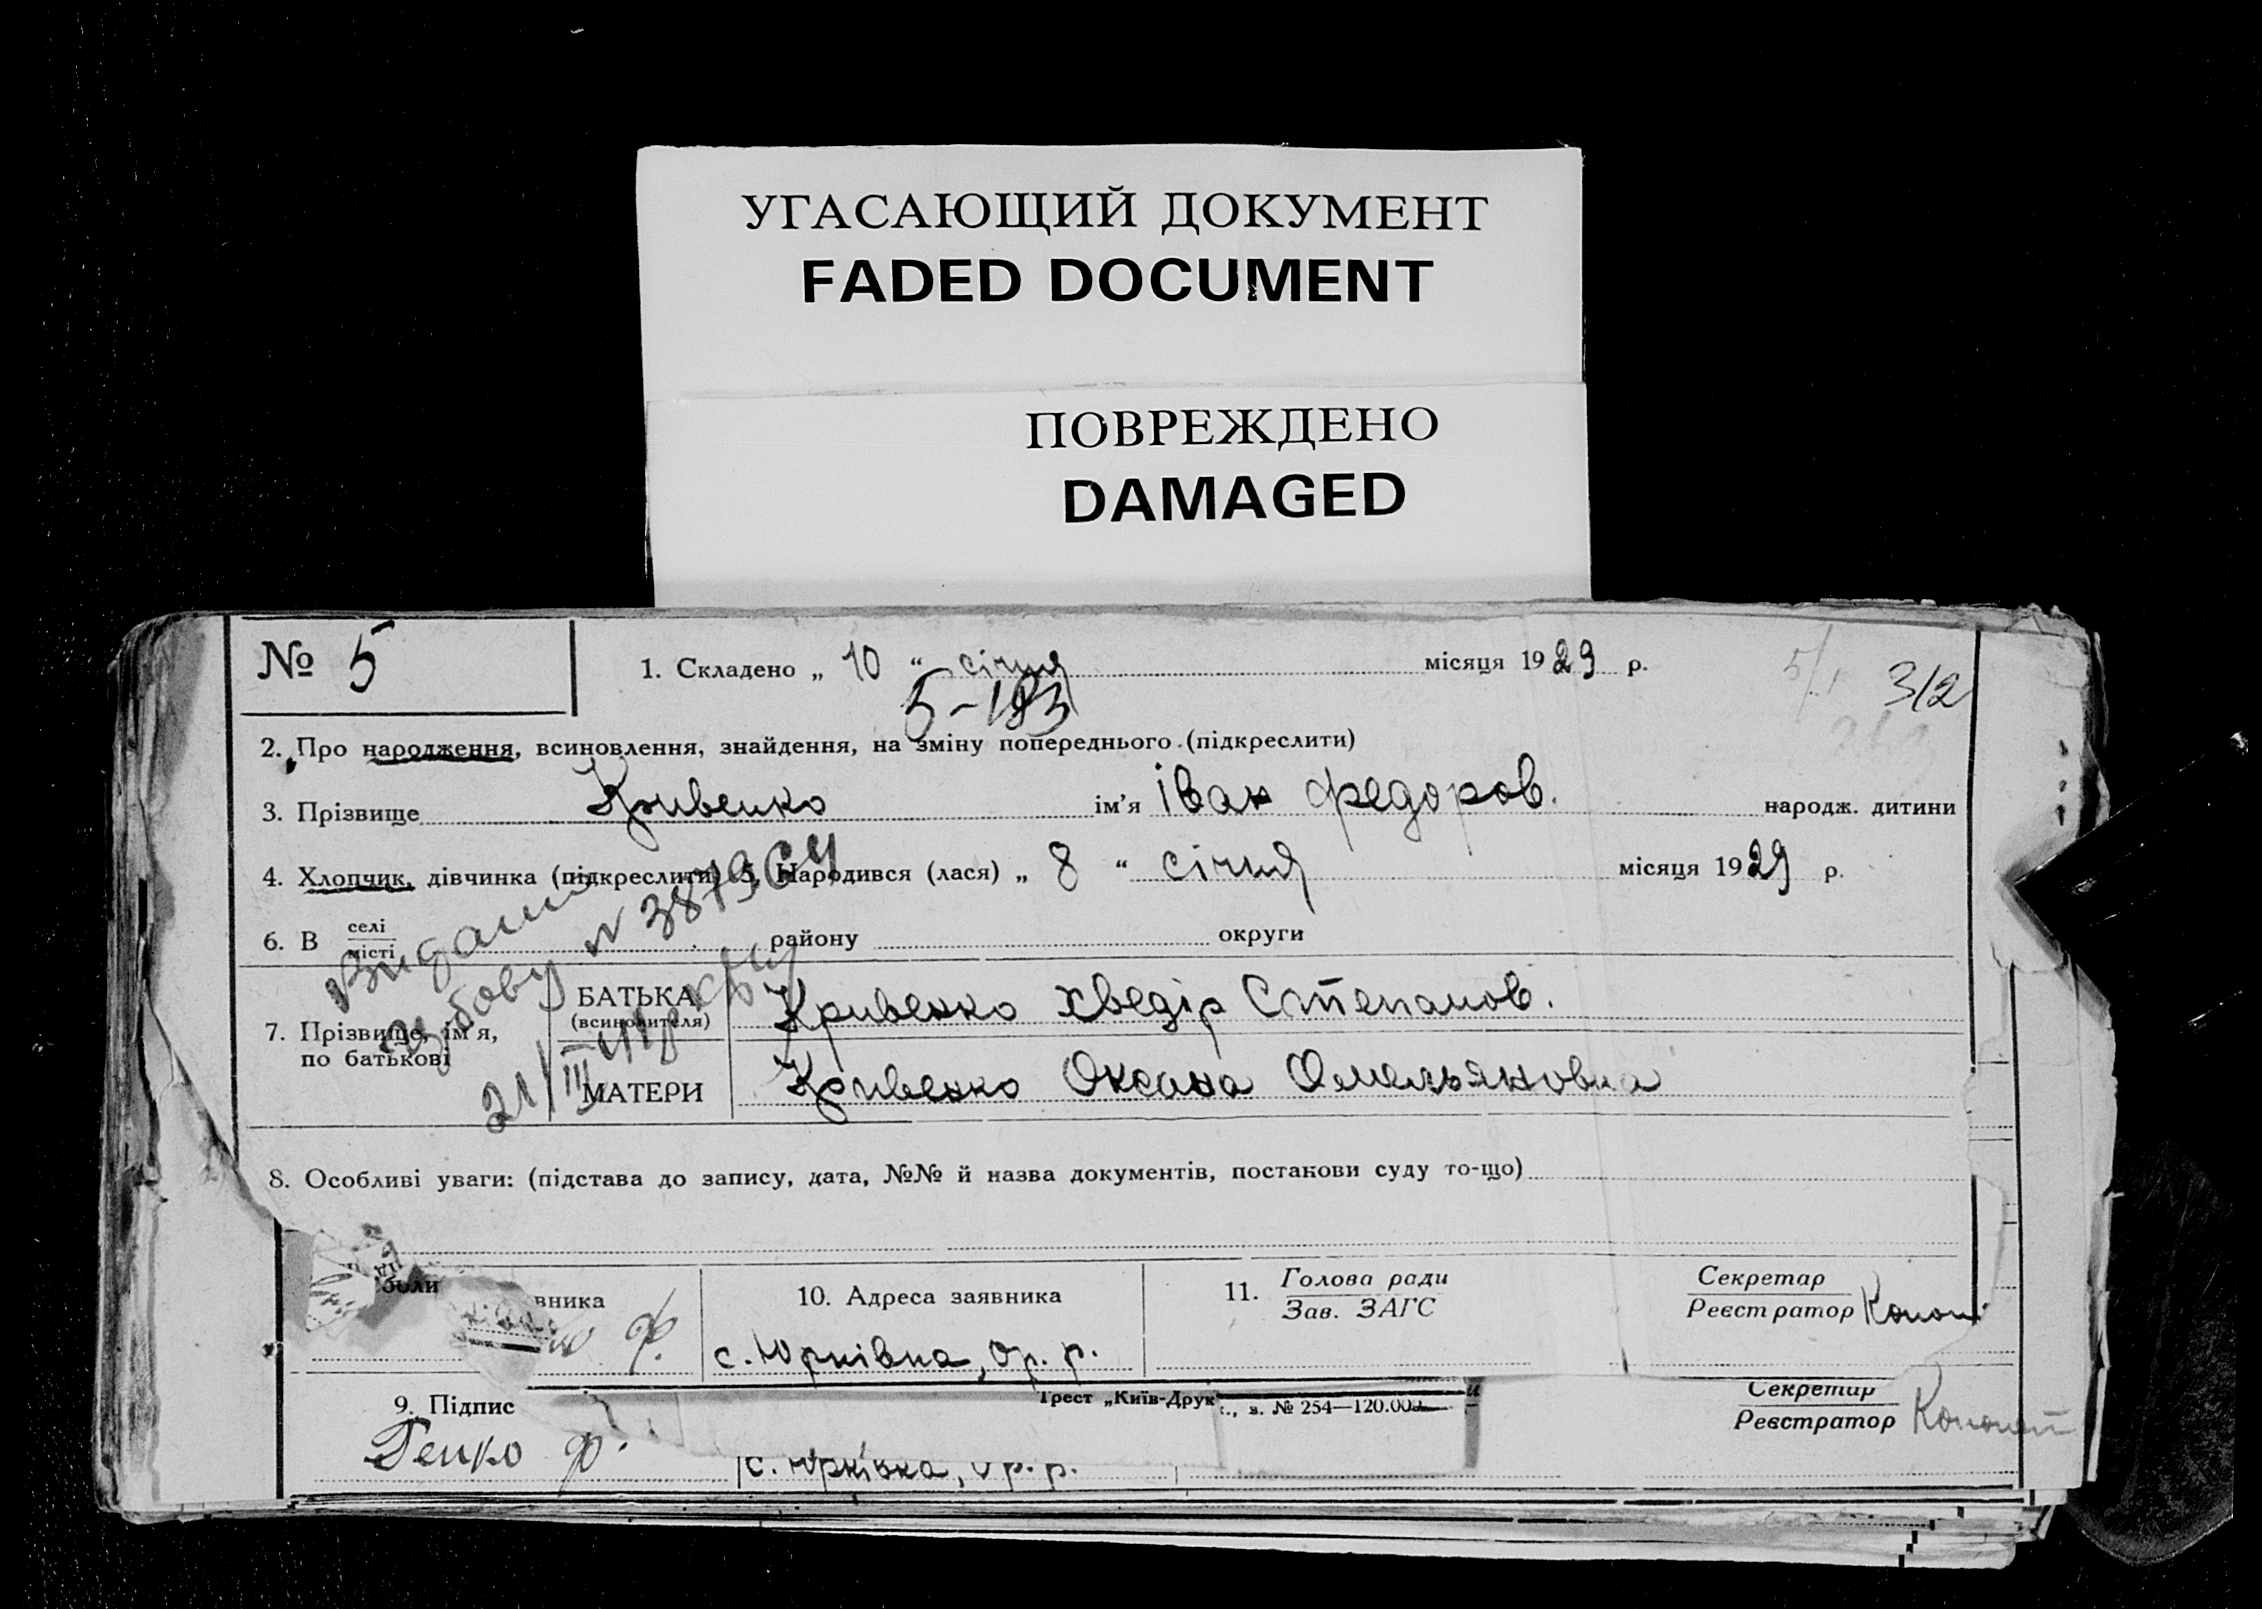 УГАСАЮЩИЙ ДОКУМЕНТ
FADED DOCUMENT
ПОВРЕЖДЕНО
DAMAGED
№ 5
1. Складено „ 10 “ січня місяця 1929 р.
5/1 312
5-193
2. Про народження, всиновлення, знайдення, на зміну попереднього (підкреслити)
3. Прізвище Кривенко ім’я Іван Федоров. народж. дитини
4. Хлопчик, дівчинка (підкреслити) 5. Народився (лася) „ 8 “ січня місяця 1929 р.
6. В селі місті району округи
7. Прізвище, ім’я, по батькові
БАТЬКА (всиновителя) Кривенко Хведір Степанов.
МАТЕРИ Кривенко Оксана Омельяновна
21/III
8. Особливі уваги: (підстава до запису, дата, №№ й назва документів, постанови суду то-що)
вника
10. Адреса заявника
11. Голова ради
Зав. ЗАГС
Секретар
Реєстратор
Ф.
с. Юрківка, Ор. р.
Трест „Київ-Друк
з. № 254—120.000
9. Підпис
Секретар
Реєстратор
Ф.
с. Юрківка, Ор. р.